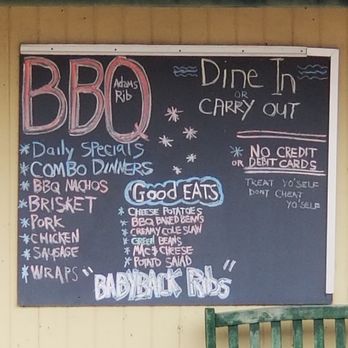 BBQ
Adams'
Rib
* Daily Specials
* COMBO DINNERS
* BBQ NACHOS
* BRISKET
* PORK
* CHICKEN
* SAUSAGE
* WRAPS
Good EATS
* CHEESE POTATOES
* BBQ BAKED BEANS
* CREAMY COLE SLAW
* GREEN BEANS
* MAC & CHEESE
* POTATO SALAD
"BABYBACK RIBS"
Dine In
OR
CARRY OUT
* NO CREDIT
OR DEBIT CARDS
TREAT YO'SELF
DONT CHEAT
YO'SELF